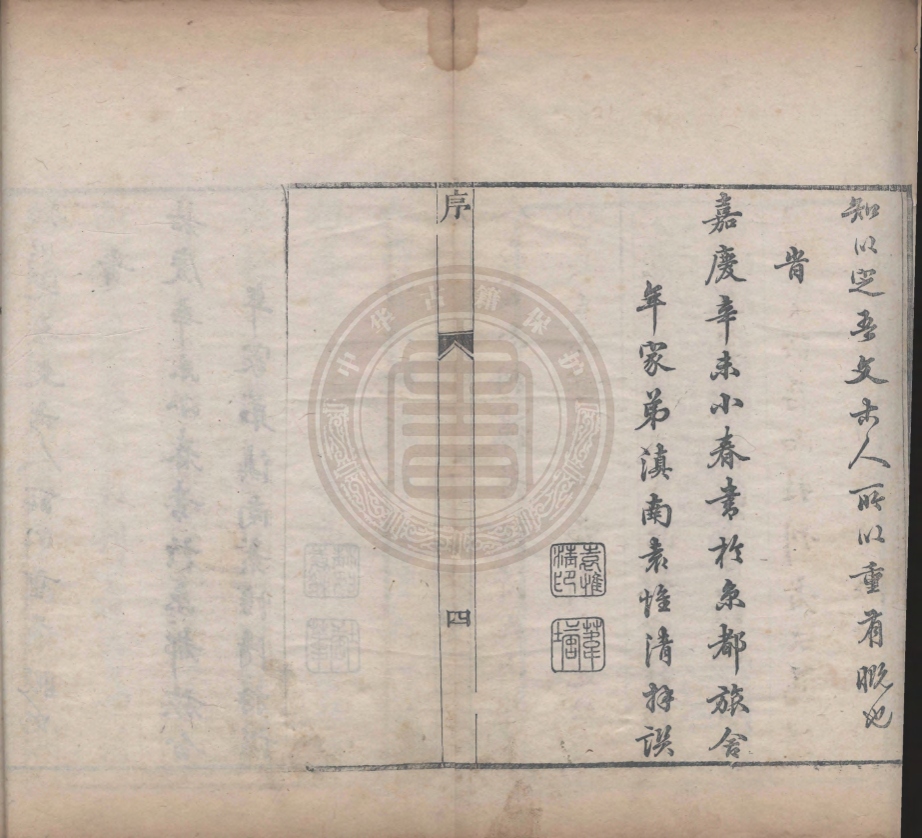 知以㝎吾文古人所以重有慨也
旹
嘉慶辛未小春書於京都旅舍
年家弟滇南袁惟清拜譔
袁惟清印
葦塘
序
四
中华古籍保护